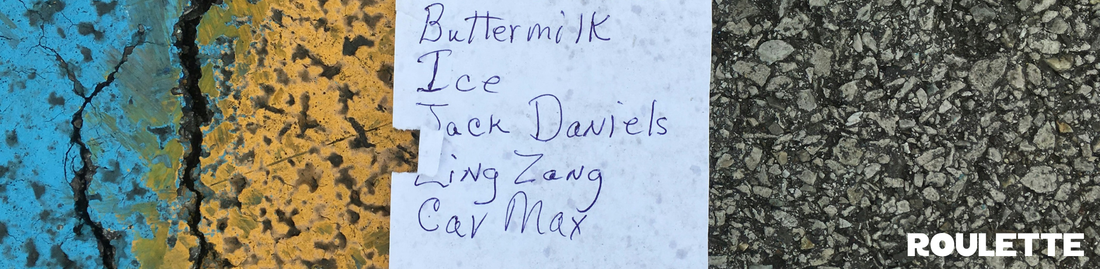 Buttermilk
Ice
Jack Daniels
Zing Zang
Car Max
ROULETTE